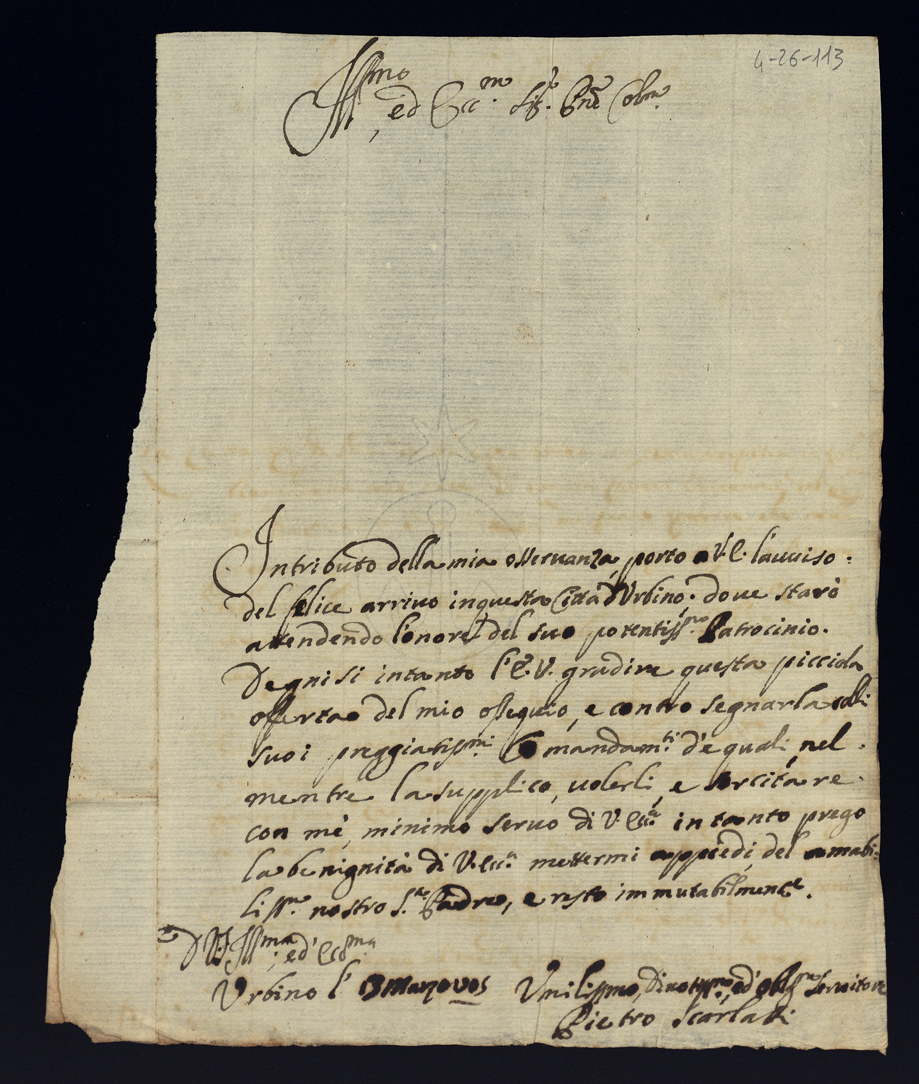 4-26-113
Ill.mo, ed Ecc.mo Sig.r P.ne Col.mo
In tributo della mia osseruanza, porto a V.E. l'auuiso.
del felice arriuo in questa Città d'Urbino. doue starò
attendendo l'onore del suo potentiss.mo Patrocinio.
Degnisi intanto l'E.V. gradire questa picciola
offerta del mio ossequio, e contro segnarla colli
suoi preggiatissimi Comandam.ti d'e quali, nel.
mentre la supplico, uolerli, esercitare
con mè, minimo seruo di V. Ecc.a intanto prego
la benignità di V. Ecc.a mettermi appiedi, del amabi-
liss.mo nostro S.re Padre, e resto immutabilmente.
D V. Ill.ma, ed Ecc.ma
Urbino l' 13 Marzo Umilissimo, Diuotiss.mo, ed obl.mo Seruitore
Pietro Scarlatti